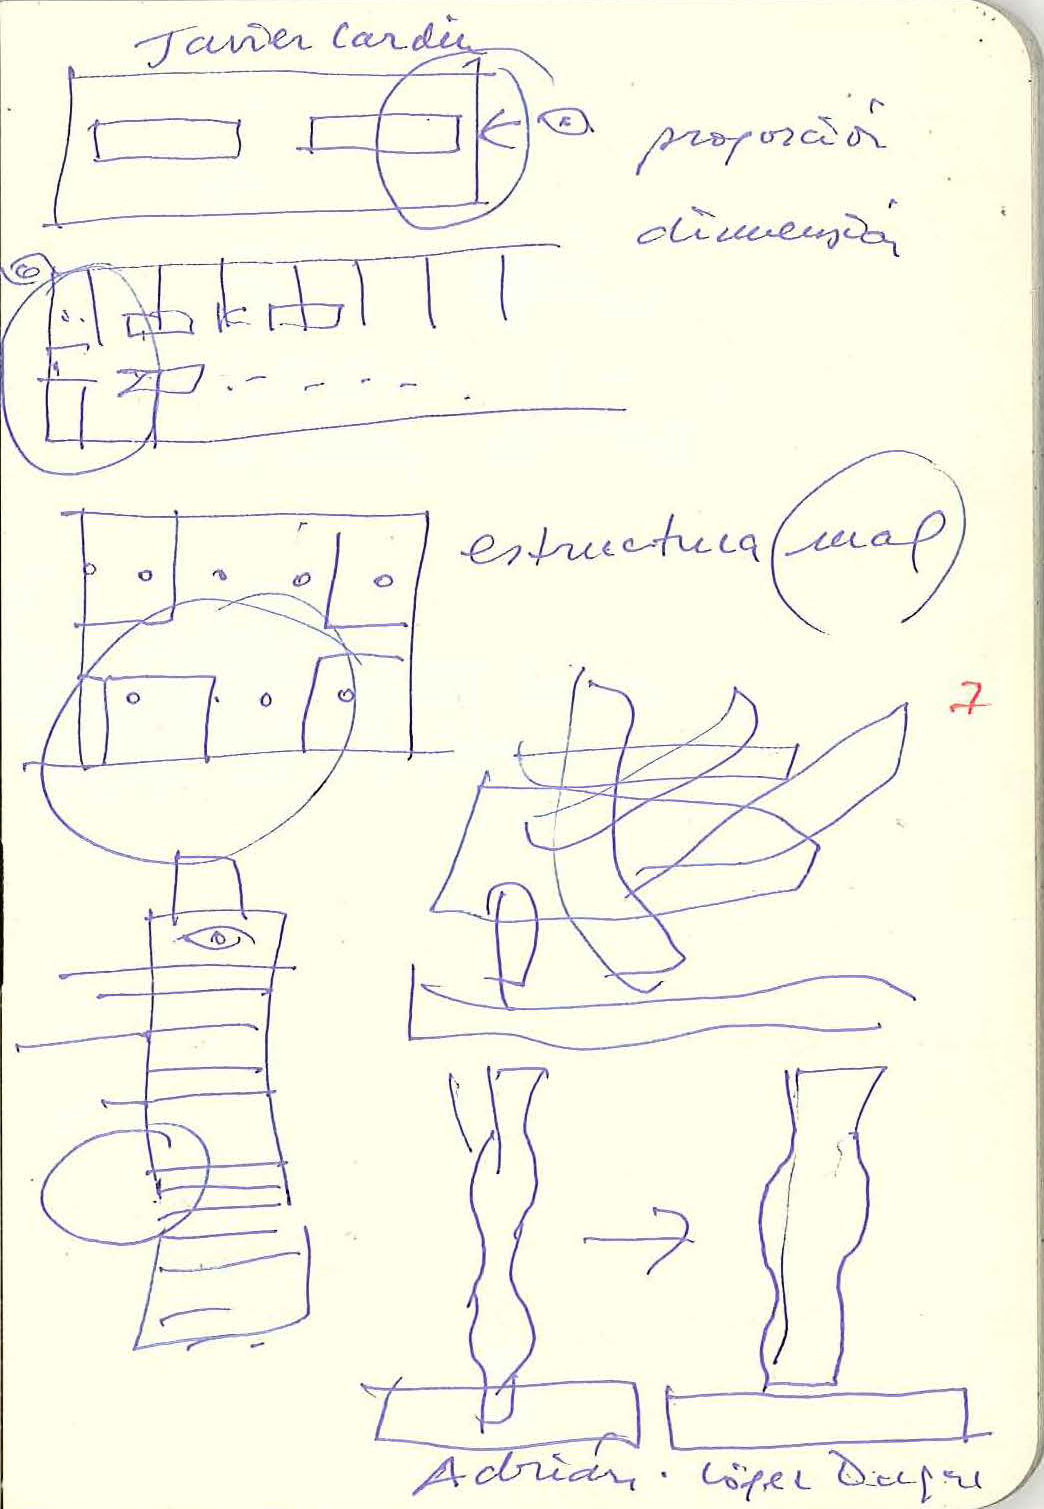 Javier Cardin
proporción
dimensión
estructura mal
7
Adrián. López